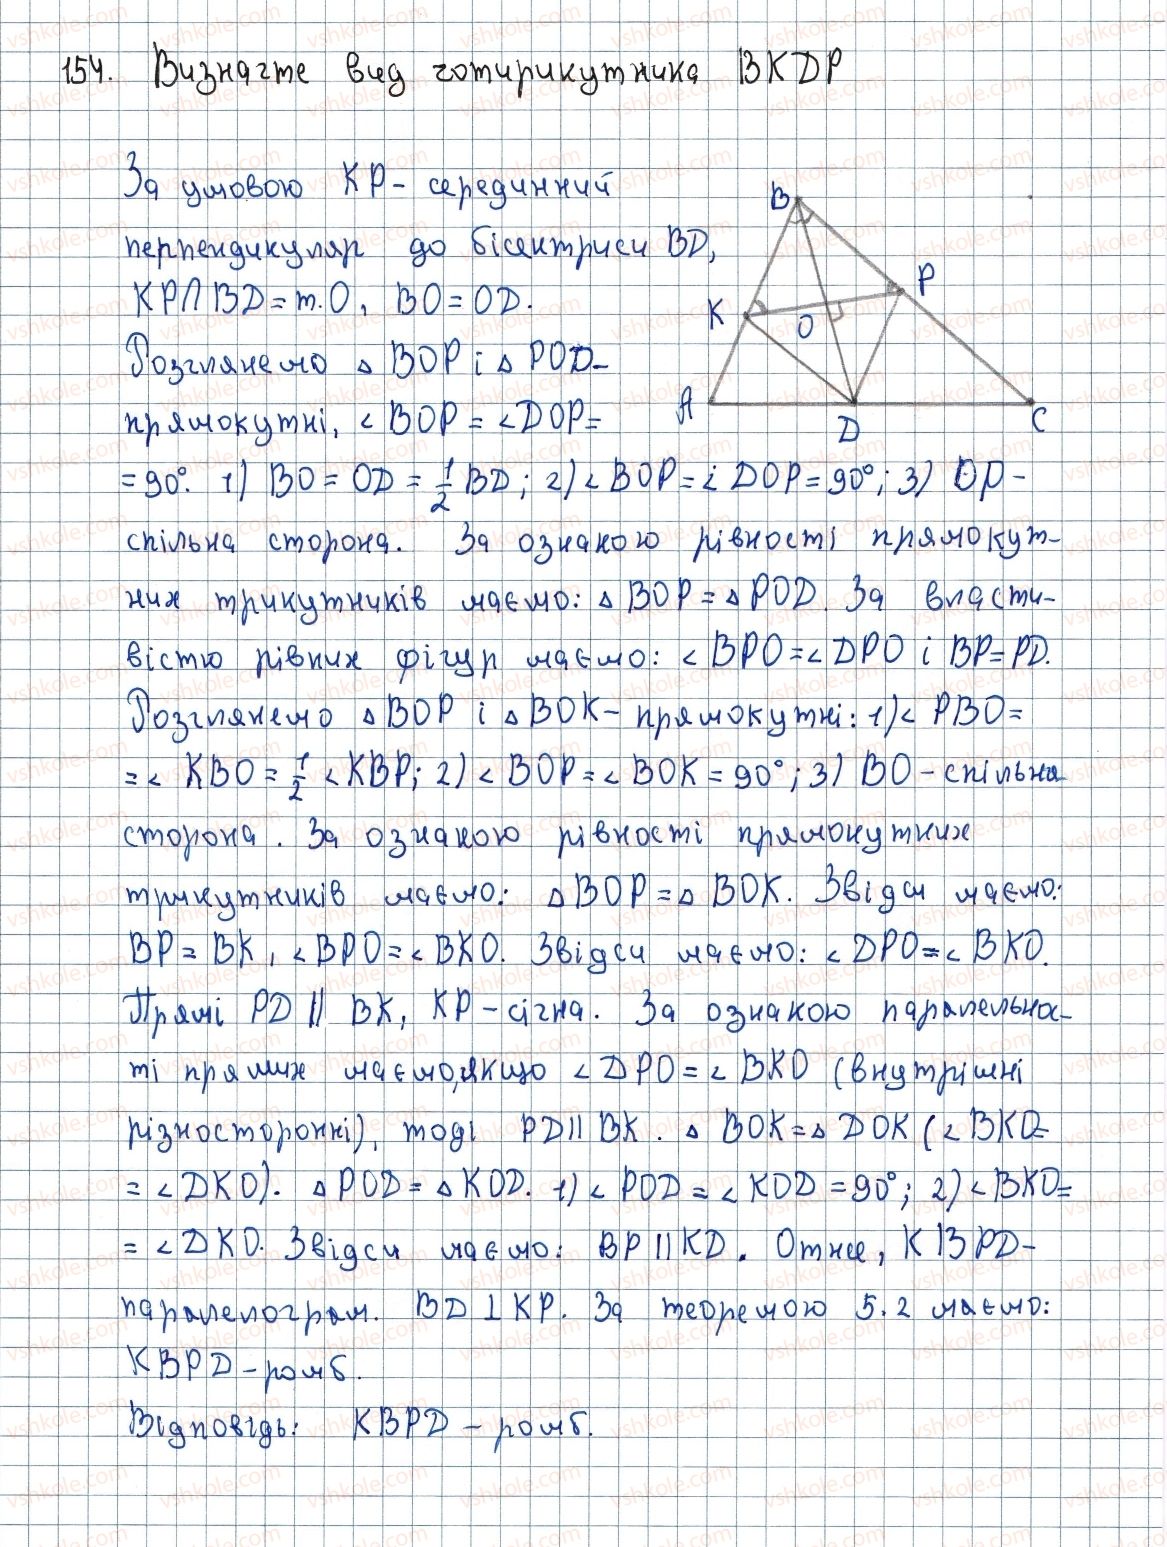 154. Визначте вид чотирикутника BKDP
За умовою KP- серединний
перпендикуляр до бісектриси BD,
KP∩BD=т.O, BO=OD.
Розглянемо ▵ BOP і ▵ POD-
прямокутні, ∠BOP = ∠DOP=
=90°. 1) BO = OD = 1/2 BD; 2) ∠BOP = ∠DOP = 90°; 3) OP -
спільна сторона. За ознакою рівності прямокут-
них трикутників маємо: ▵ BOP = ▵ POD. За власти-
вістю рівних фігур маємо: ∠BPO=∠DPO і BP=PD.
Розглянемо ▵BOP і ▵BOK- прямокутні: 1)∠ PBO=
=∠ KBO = 1/2 ∠KBP; 2) ∠BOP = ∠BOK = 90°; 3) BO - спільна
сторона. За ознакою рівності прямокутних
трикутників маємо: ▵BOP = ▵ BOK. Звідси маємо:
BP = BK, ∠BPO = ∠BKO. Звідси маємо: ∠DPO=∠BKO.
Прямі PD || BK, KP-січна. За ознакою паралельнос-
ті прямих маємо,якщо ∠DPO = ∠BKO (внутрішні
різносторонні), тоді PD || BK. ▵ BOK = ▵ DOK (∠BKO=
= ∠DKO). ▵POD = ▵KOD. 1) ∠POD = ∠KOD = 90°; 2) ∠BKO=
= ∠DKO. Звідси маємо: BP || KD. Отже, KBPD-
паралелограм. BD ⊥ KP. За теоремою 5.2 маємо:
KBPD - ромб.
Відповідь: KBPD - ромб.
B
P
K
O
A
D
C
vshkole.com